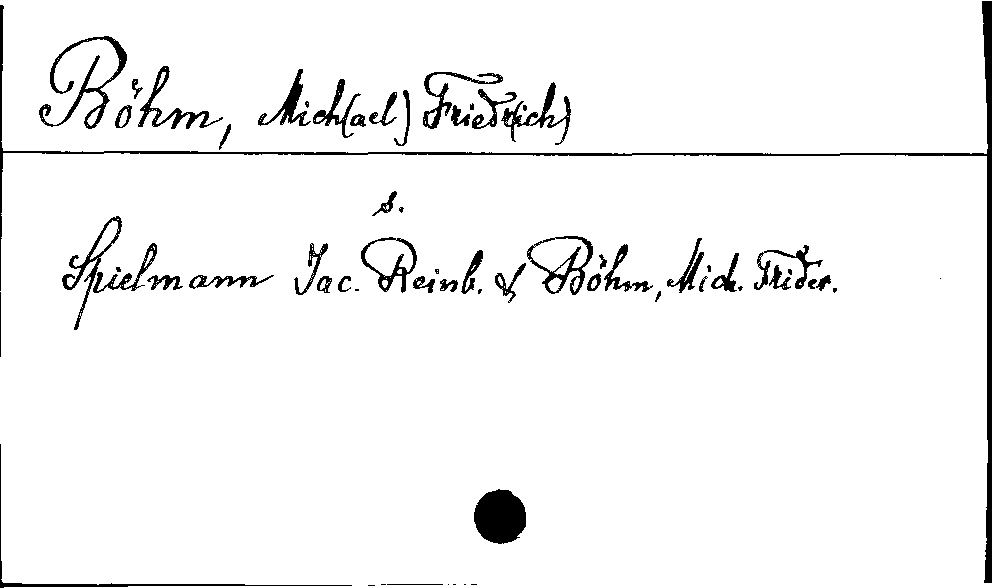 Böhm, Mich(ael) Friedr(ich)
s.
Spielmann Jac. Reinb. & Böhm, Mich. Frider.